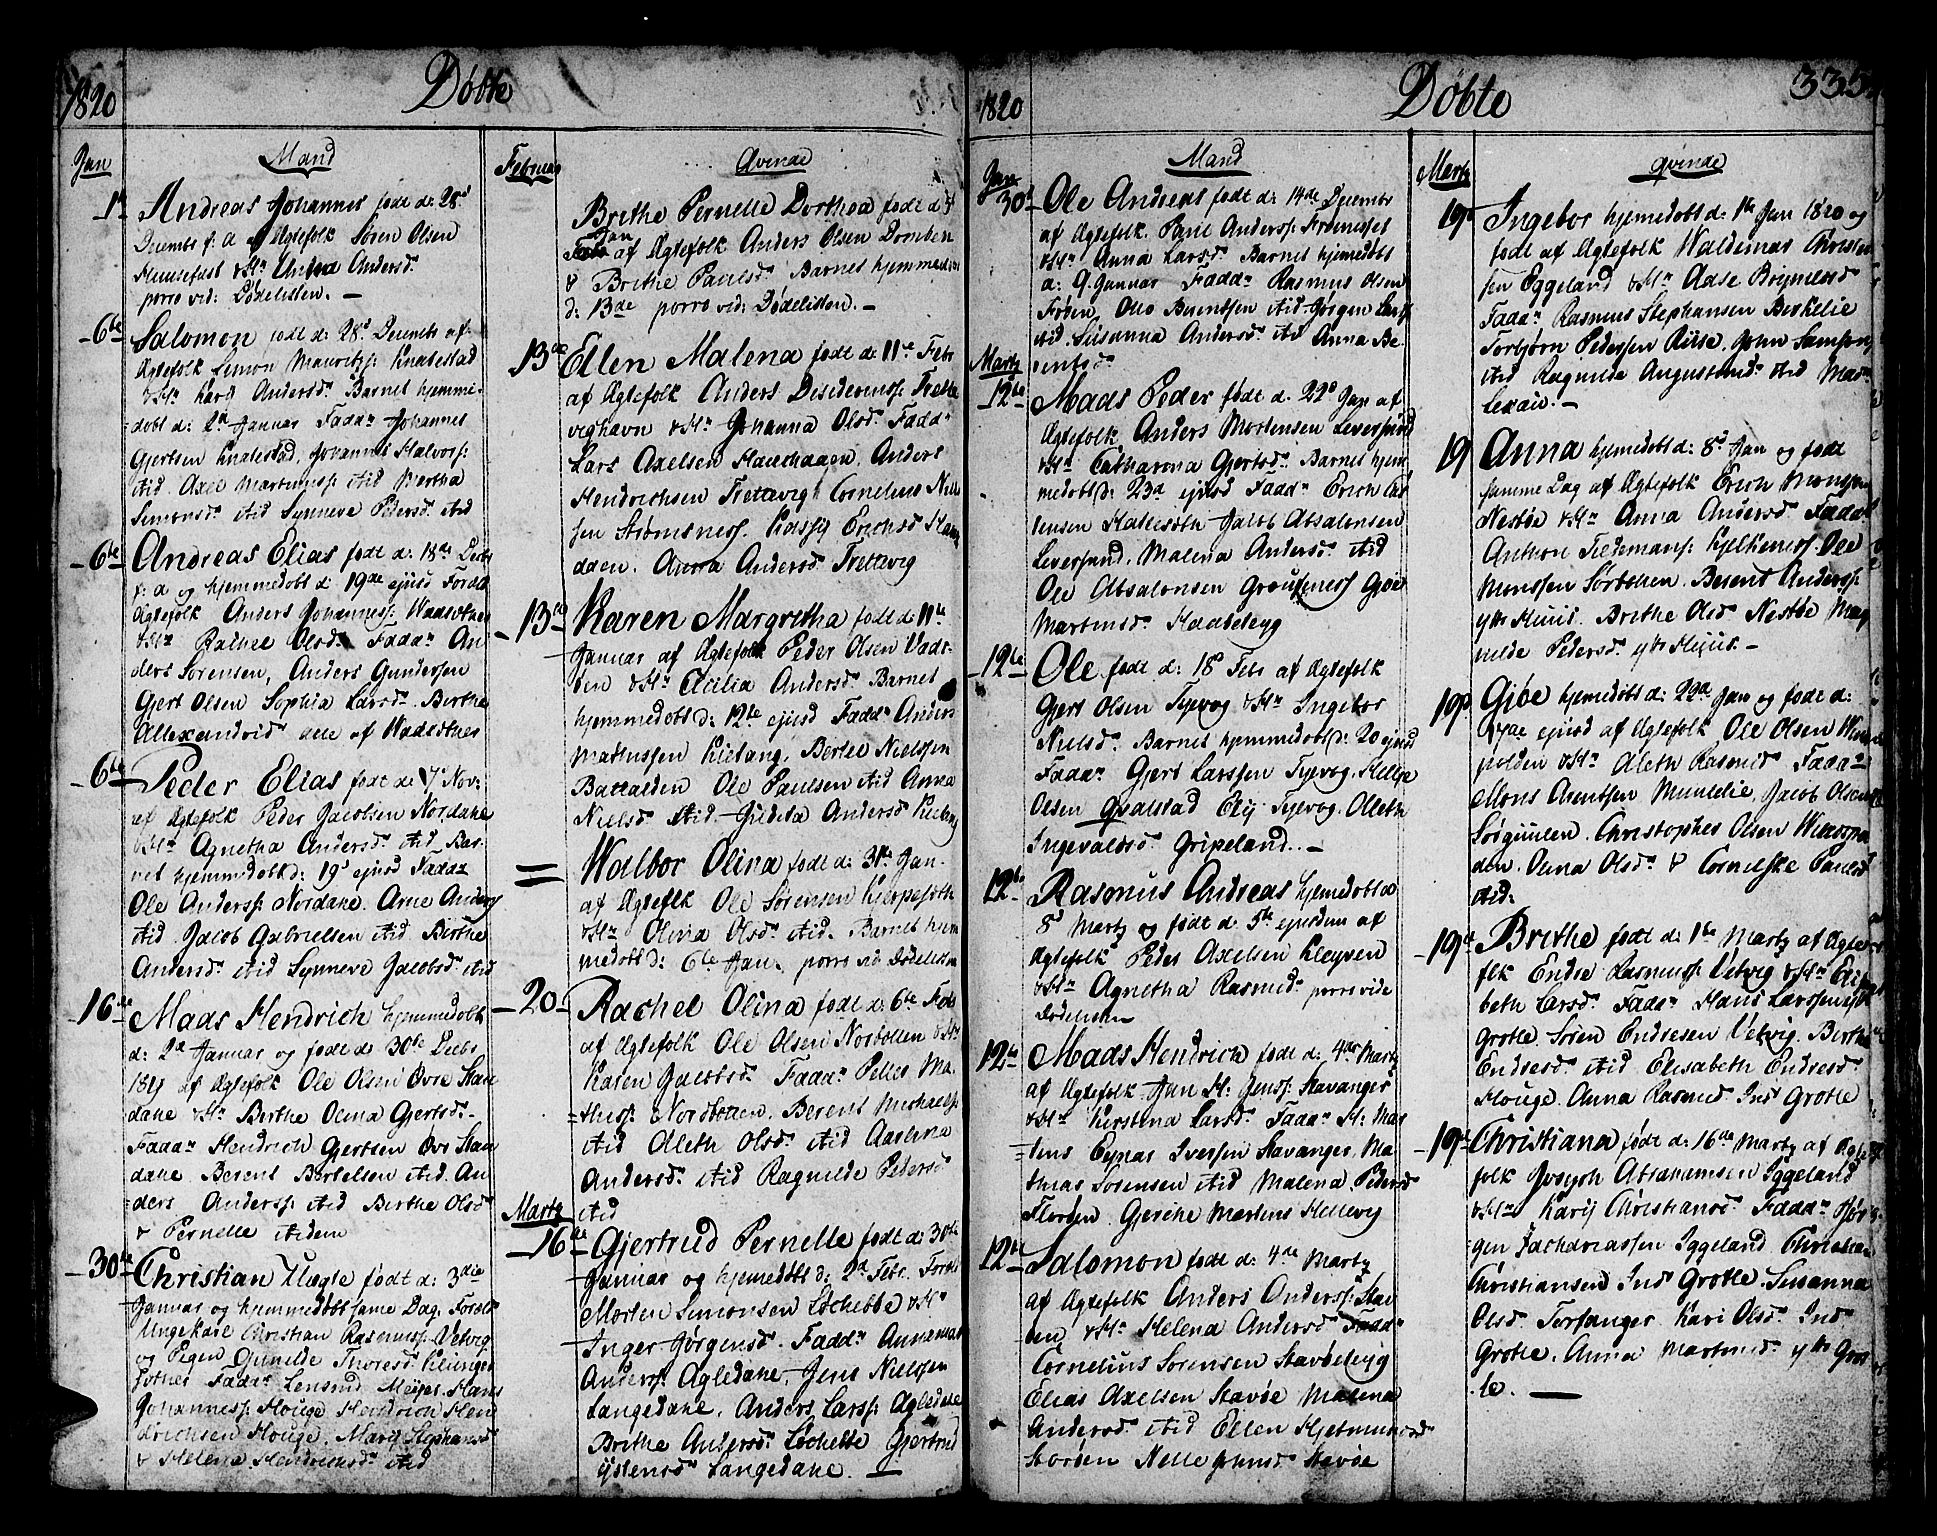 1820 Døbte
Jan Mand
1 Andreas Johannes født d: 28d
Decembr f: a af Ægtefolk Søren Olsen
Anna Andersd.
porro vid: Dødelisten. —
6te Salomon født d: 28d Decembr af
Ægtefolk Simon Mauritzs: Knalestad
& Karij Andersd. Barnet hjemme-
døbt d: 2d Januar Fadd. Johannes
Gjertsen Knalestad, Johannes Halvors:
ibid. Axel Martinuss: ibid Bertha
Simonsd. ibid Synneve Pedersd. ibid
6te Andreas Elias født d: 18de Decbr
f: a og hjemmedøbt d 19de ejusd Forældr
Ægtefolk Anders Johanness: Waaeotnes
& Olsd. Fadd. An-
ders Sørensen, Anders Gundersen
Gjert Olsen Sophia Larsd. Berthe
Allexandrid alle af Waaeotnes
6te Peder Elias født de 7d Nov:
af Ægtefolk Peder Jacobsen Nordane
& Agnetha Andersd. ibid Bar-
net hjemmedøbt d: 19d ejusd Fadd.
Ole Anderss: Nordane. Arne Anders
ibid. Jacob Gabrielsen ibid Birthe
Andersd. ibid Synneve Jacobsd. ibid
16de Mads Hendrich hjemmedøbt
d: 2d Januar og født d 30te Decbr
1819 af Ægtefolk Ole Olsen Øvre Staae
dane & Berthe Olina Gjertsd.
Fadd. Hendrich Gjertsen Øvr Staae
dane Berent Bertelsen ibid. An-
ders Anderss: ibid Birthe Olsd
& Pernelle ibidem
30te Christian Uægte født d: 3die
Januar og hjemmedøbt samme Dag. Foreld.
Ungekarl Christian Rasmuss: Vetvig
og Pigen Gunilde Thoresd. Klingen
Fadd. Lensmd Meijer. Hans
Johanness: Houge Hendrich Hen
drichsen Houge. Marij Stephansd
& Helena Hendrichsd. ibid
Februar Qvinde
Brithe Pernelle Dorthea født d
Jan
af Ægtefolk Anders Olsen Domben
& Brithe Paulsd. Barnet hjemmedøbt
d: 13de porro vid: Dødelisten. —
13de Ellen Malena født d: 11te Febr
af Ægtefolk Anders Desideriuss: Trette
vighavn & Johanna Olsd. Fadd.
Lars Axelsen Anders
Hendrichsen Trettevigh Cornelius Niel
sen Strømsness. Erichsd
daen. Anna Andersd. Trettevig
13de Karen Margretha født d: 11te
Januar af Ægtefolk Peder Olsen Vads-
& Cicilia Andersd. Barnet
hjemmedøbt d: 12te ejusd Fadd. Anders
Mathissen Kietang, Bertel Nielssen
Batalden Ole Paulsen ibid Anna
Nielsd. ibid. Andersd
= Walbor Olina født d: 3die Jan.
af Ægtefolk Ole Sørensen
& Olina Olsd. ibid. Barnet hjem
medøbt d: 6te Jan. porro vid Dødelisten
20 Rachel Olina født d: 6te Febr
af Ægtefolk Ole Olsen Norbotten &
Karen Jacobsd. Fadd. Petter Ma-
thiss: Nordbotten. Berent Michaels:
ibid Aleth Olsd. ibid Aaselina
Andersd. ibid Ragnilde Pedersd
ibid
Martz
16de Gjertrud Pernelle født d: 30te
Januar og hjemmedøbt d: 2d Febr. Foreld
Morten Simonsen Løchebøe &
Inger Jørgensd. Fadd.
Anderss: Ægledane, Jens Nielsen
Langedane, Anders Larss: Ægledane
Brithe Andersd. Løchebøe Gjertrud
Langedane. —
1820 Døbte 335
Jan Mand
30te Ole Andreas født d: 14de Decembr
af Ægtefolk Poul Anderss: Strømesset
& Anna Larsd. Barnet hjemedøbt
d: 9. Januar Fadd. Rasmus Olsen
Frøien, Ole Berentsen ibid. Jørgen Larss
ibid. Susanna Andersd. ibid Anna Be-
rentsd.
Martz
12te Mads Peder født d. 22d Jan af
Ægtefolk Anders Mortensen Leversund
& Catharina Gjertsd. Barnet hjem
medøbt d: 23d ejusd Fadd. Erich
lensen Jacob Absalonsen
Leversund. Malena Andersd. ibid
Ole Absalonsen Gjøe
Martinsd. Haabeleyg
12te Ole født d: 18d Febr af Ægtefolk
Gjert Olsen Tyevog & Ingebor
Nielsd. Barnet hjemmedøbt d: 20 ejusd
Fadd. Gjert Larssen Tyevog. Helge
Olsen Qvalstad Elij Tyevog. Oleth
Ingevaldsd. Gripeland. —
12te Rasmus Andreas hjemedøbt d
8d Martz og født d. 5te ejusdem af
Ægtefolk Peder Axelsen Kleyven
& Agnetha Rasmusd. porro vide
Dødelisten
12te Mads Hendrich født d: 4de Martz
af Ægtefolk Jan H: Jenss: Stavanger
& Kirstina Larsd. Fadd. H: Mar
tens Eynar Iversen Stavanger, Ma-
thias Sørensen ibid Malena Pedersd
Florøen. Gjerche Martens Hellevig
12te Salomon født d: 4de Martz
af Ægtefolk Anders Anderss: Stav
& Helena Andersd. Fadd.
Cornelius Sørensen Stavøeleyg
Elias Axelsen Stavøe Malena
Andersd. ibid Ellen Hjelmundsd
Storøen Nelle Johnsd Stavøe
Martz Qvinde
19de Ingebor hjemedøbt d: 1te Jan 1820 og
født af Ægtefolk Waldemar Christen
sen Eggeland & Aase Brynilsd
Fadd. Rasmus Stephansen Berkelie
Torbjørn Pedersen Riise. John Samsons
ibid Ragnilde Augustinusd. ibid
19 Anna hjemedøbt d: 8d Jan og født
samme Dag af Ægtefolk Erich Monssen
Nesbøe & Anna Andersd. Fadd.
Anthon Tiedemans: Hjelkenes. Ole
Monssen Berent Anderss:
ytr Huus. Brithe Olsd Nesbøe Mag
nilde Pedersd. ytr Huus. —
19de Gjøe hjemedøbt d: 22de Jan og født d:
ejusd af Ægtefolk Ole Olsen
& Aleth Rasmusd. Fadd.
Mons Arentsen Jacob Olsen
Sørgulen. Christopher Olsen
den. Olina Olsd. & Corneliske Paulsd
ibid.
19de Brithe født d: 1te Martz af Ægte
flk Endre Rasmuss: Vetvig & Elisa
beth Larsd. Fadd. Hans Larssen
Grotle. Søren Endresen Vetvig. Birthe
Endresd. ibid Elisabeth Endresd.
Houge. Anna Rasmusd Ind Grotle
19de Christiana født d: 16de Martz af Ægte
folk Josyph Abrahamsen Iggeland
& Karij Christiansd. Fadd. Jør
gen Zachariassen Iggeland Christian
Christiansen Ind Grotle. Susanna
Olsd Torfanger Kari Olsd. Ind
Grotle. Anna Martinusd. ytr Grot
le. —